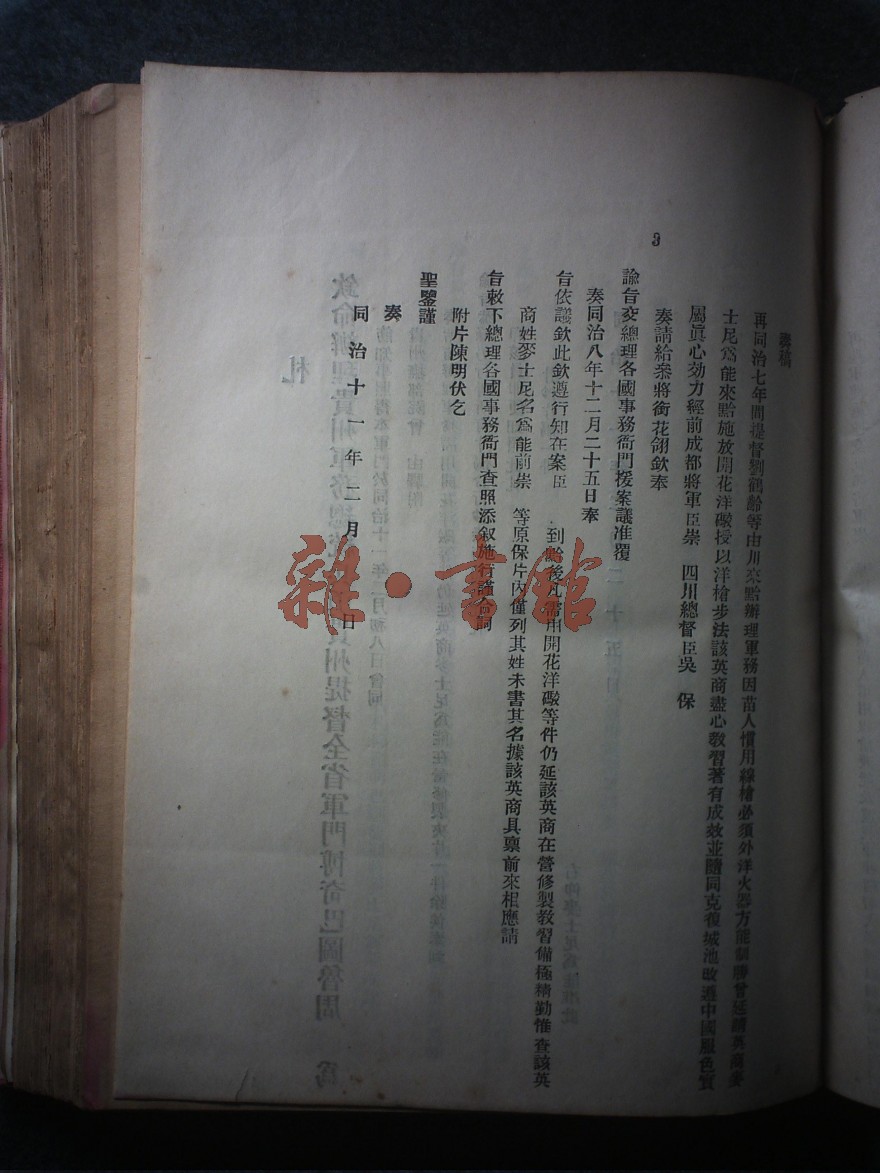 3
騰稿
再同治七年間提督劉鶴齡等由川來黔辦理軍務因苗人慣用線槍必須外洋火器方能制勝曾延請英商麥
士尼爲能來黔施放開花洋礮授以洋槍步法該英商盡心敎習著有成效並隨同克復城池改遵中國服色實
屬眞心効力經前成都將軍臣崇 四川總督臣吳 保
奏請給參將銜花翎欽奉
諭旨交總理各國事務衙門援案議准覆
奏同治八年十二月二十五日奉
旨依議欽此欽遵行知在案臣 到黔後凡需用開花洋礮等件仍延該英商在營修製敎習備極精勤惟查該英
商姓麥士尼名爲能前崇 等原保片內僅列其姓未書其名據該英商具稟前來相應請
旨敕下總理各國事務衙門查照添叙施行謹合詞
附片陳明伏乞
聖鑒謹
奏
同治十一年二月 日
雜·書館